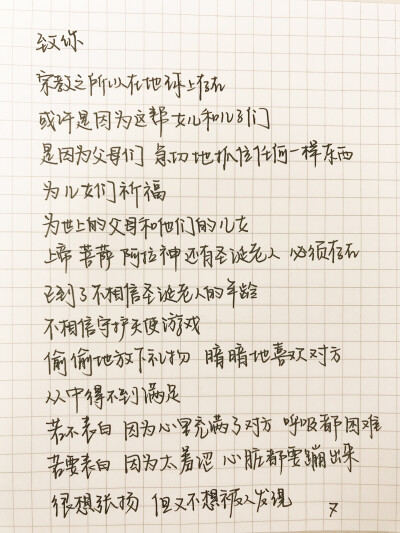 致你
宗教之所以在地球上存在
或许是因为这帮女儿和儿子们
是因为父母们 急切地抓住任何一样东西
为儿女们祈福
为世上的父母和他们的儿女
上帝 菩萨 阿拉神 还有圣诞老人 必须存在
已到了不相信圣诞老人的年龄
不相信守护天使游戏
偷偷地放下礼物 暗暗地喜欢对方
从中得不到满足
若不表白 因为心里充满了对方 呼吸都困难
若要表白 因为太羞涩 心脏都要蹦出来
很想张扬 但又不想被人发现